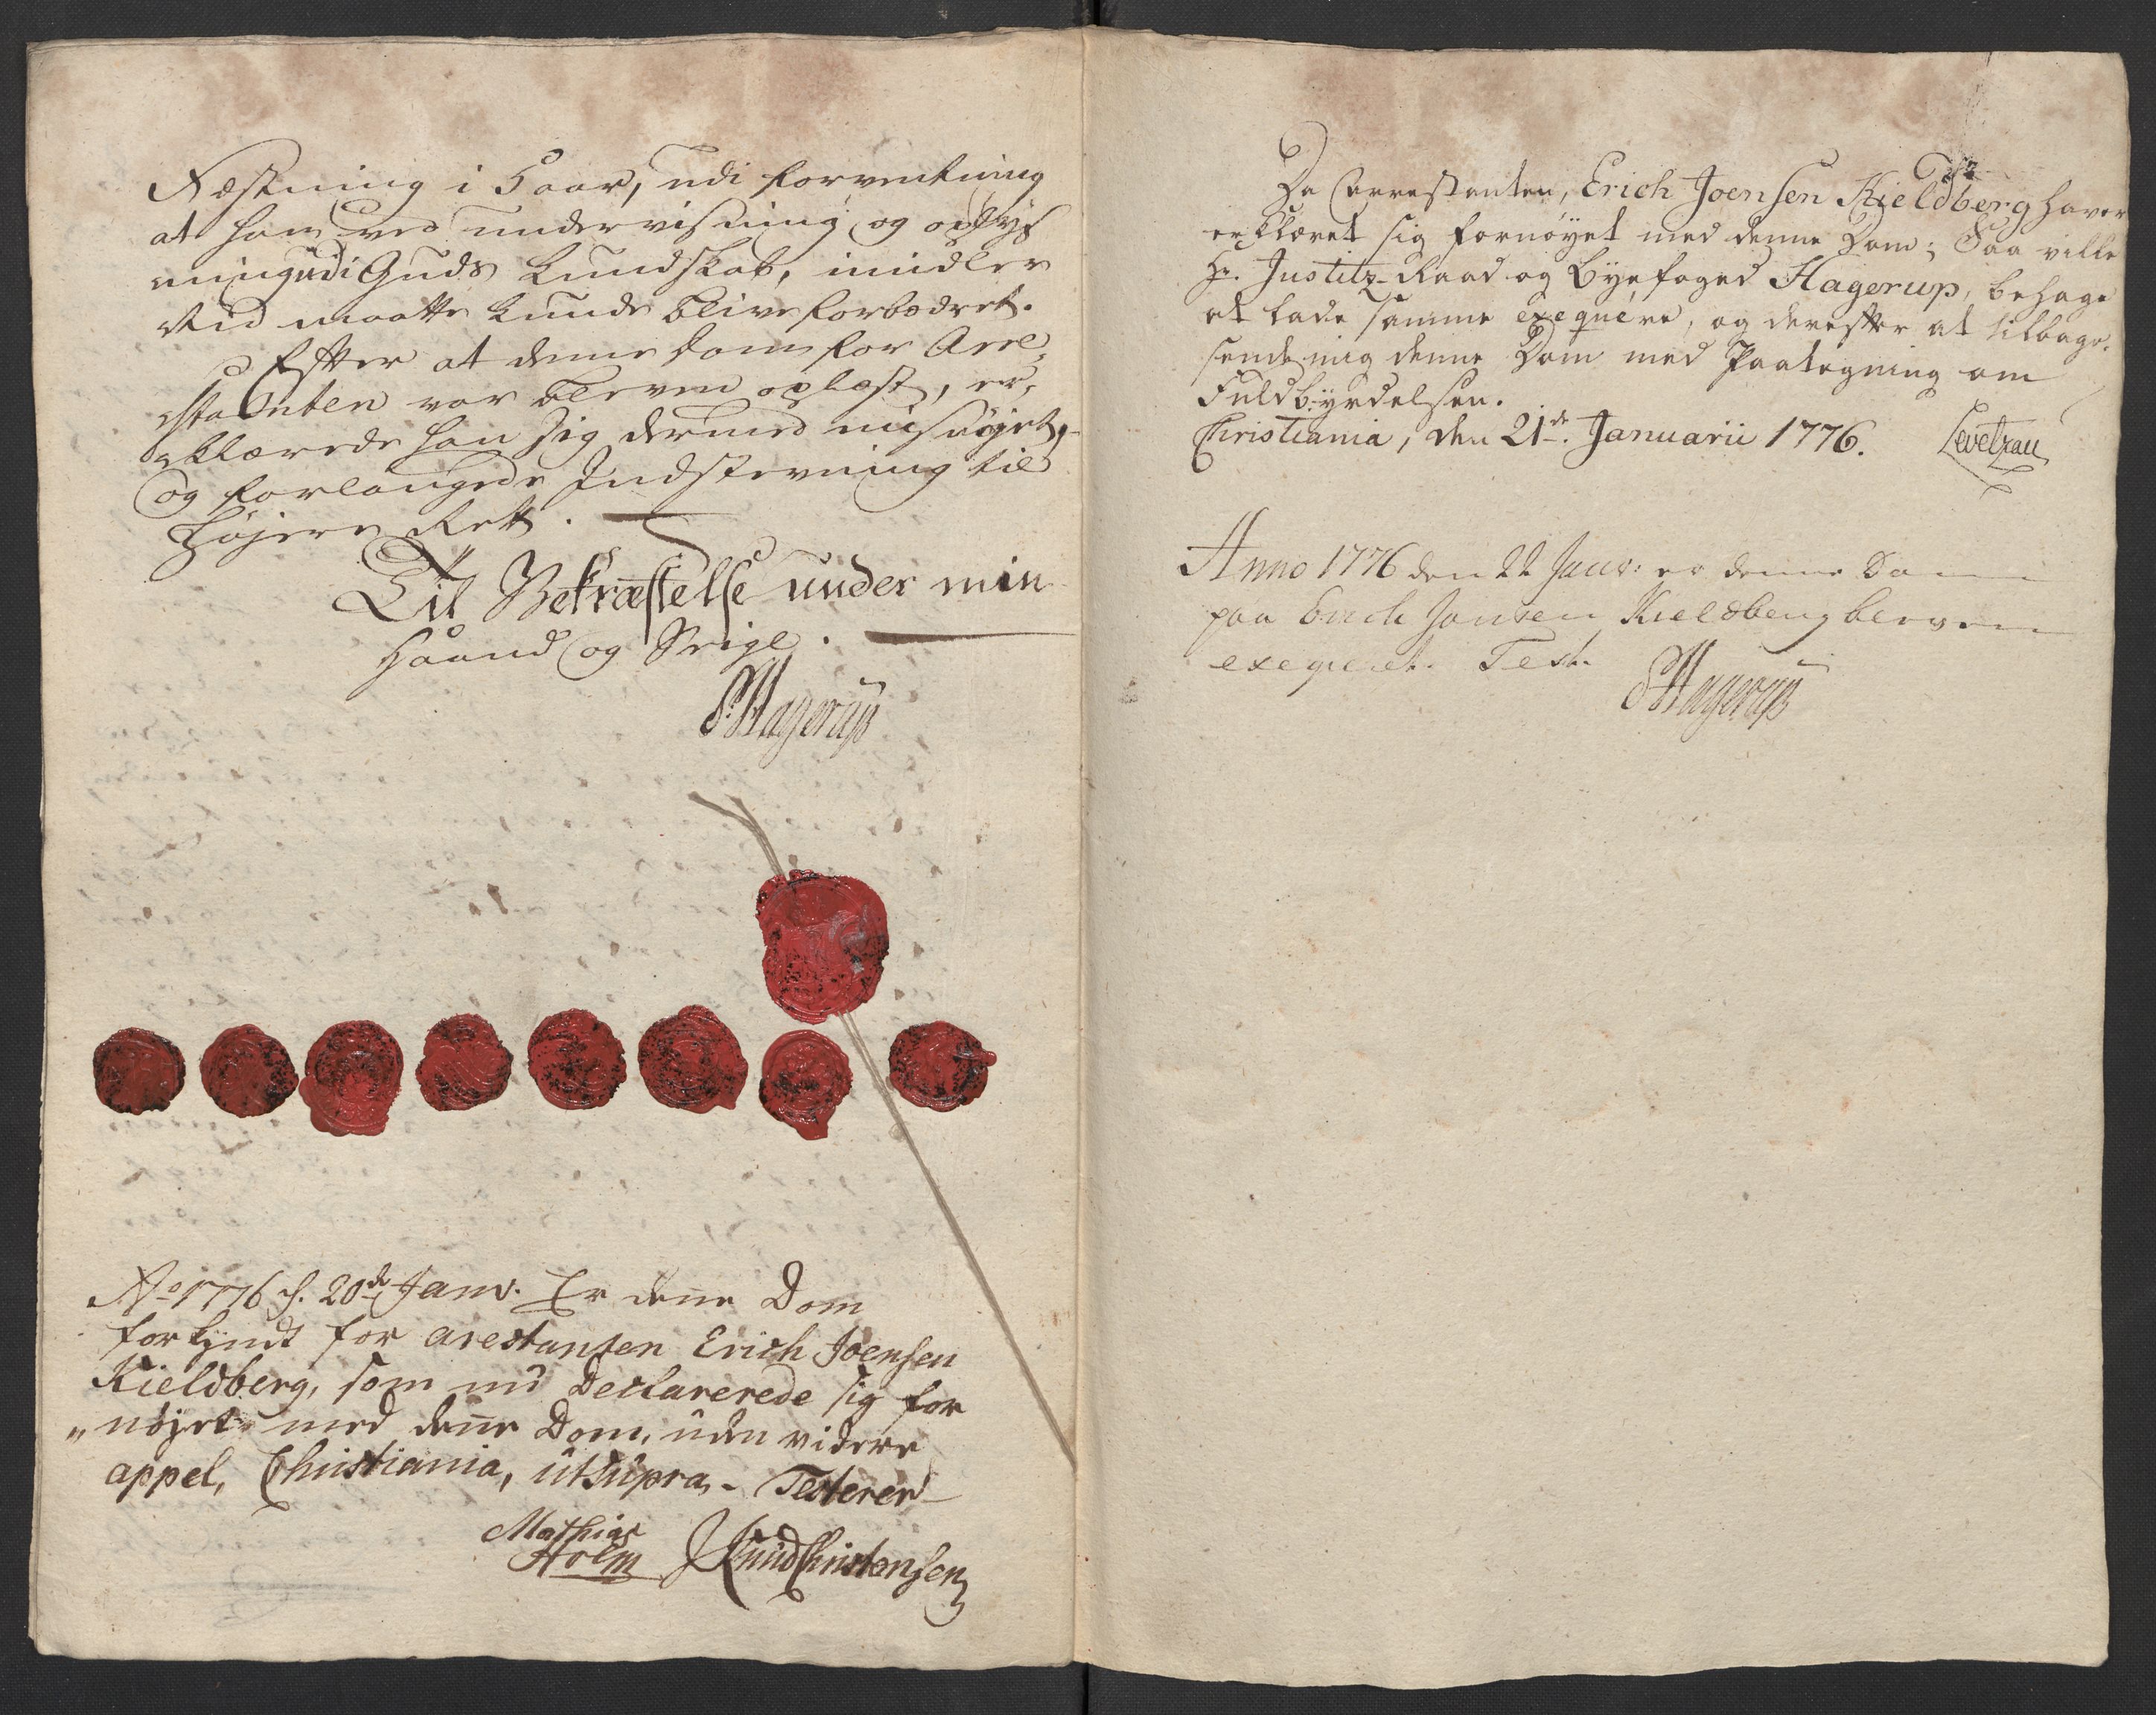 Fæstning i 5 aar, udi forventning
at han ved undervisning og oplys
ning udi Guds Kundskab, imidler
tid maatte kunde blive forbædret.
Efter at denne Dom for Arre,
stanten var bleven oplæst, er,
klærede han sig dermed misnøjet,
og forlangede Indstevning til
Højere Rett.
Til Bekræftelse under min
Haand og Seigl.
S. Hagerup
Ao 1776 d. 20de Janv. Er dene Dom
forkyndt for arestanten Erich Joensen
Kieldberg, som nu Declarerede sig for
"nøjet med dene Dom, uden videre
appel, Christiania, ut supra. Testerer
Mathias
Holm Knud Christensen
Da Arrestanten, Erich Joensen Kieldberg haver
erklæret sig fornøyet med denne Dom; Saa ville
Hr. Justitz-Raad og Byefoged Hagerup, behage
at lade samme exeqvére, og derefter at tilbage-
sende mig denne Dom med Paategning om
Fuldbyrdelsen.
Christiania, den 21de. Januarii 1776. Levetzau
Anno 1776 den 22 Janv: er denne Dom
paa Erich Jonsen Kieldberg bleven
exeqveret. Test.
S Hagerup